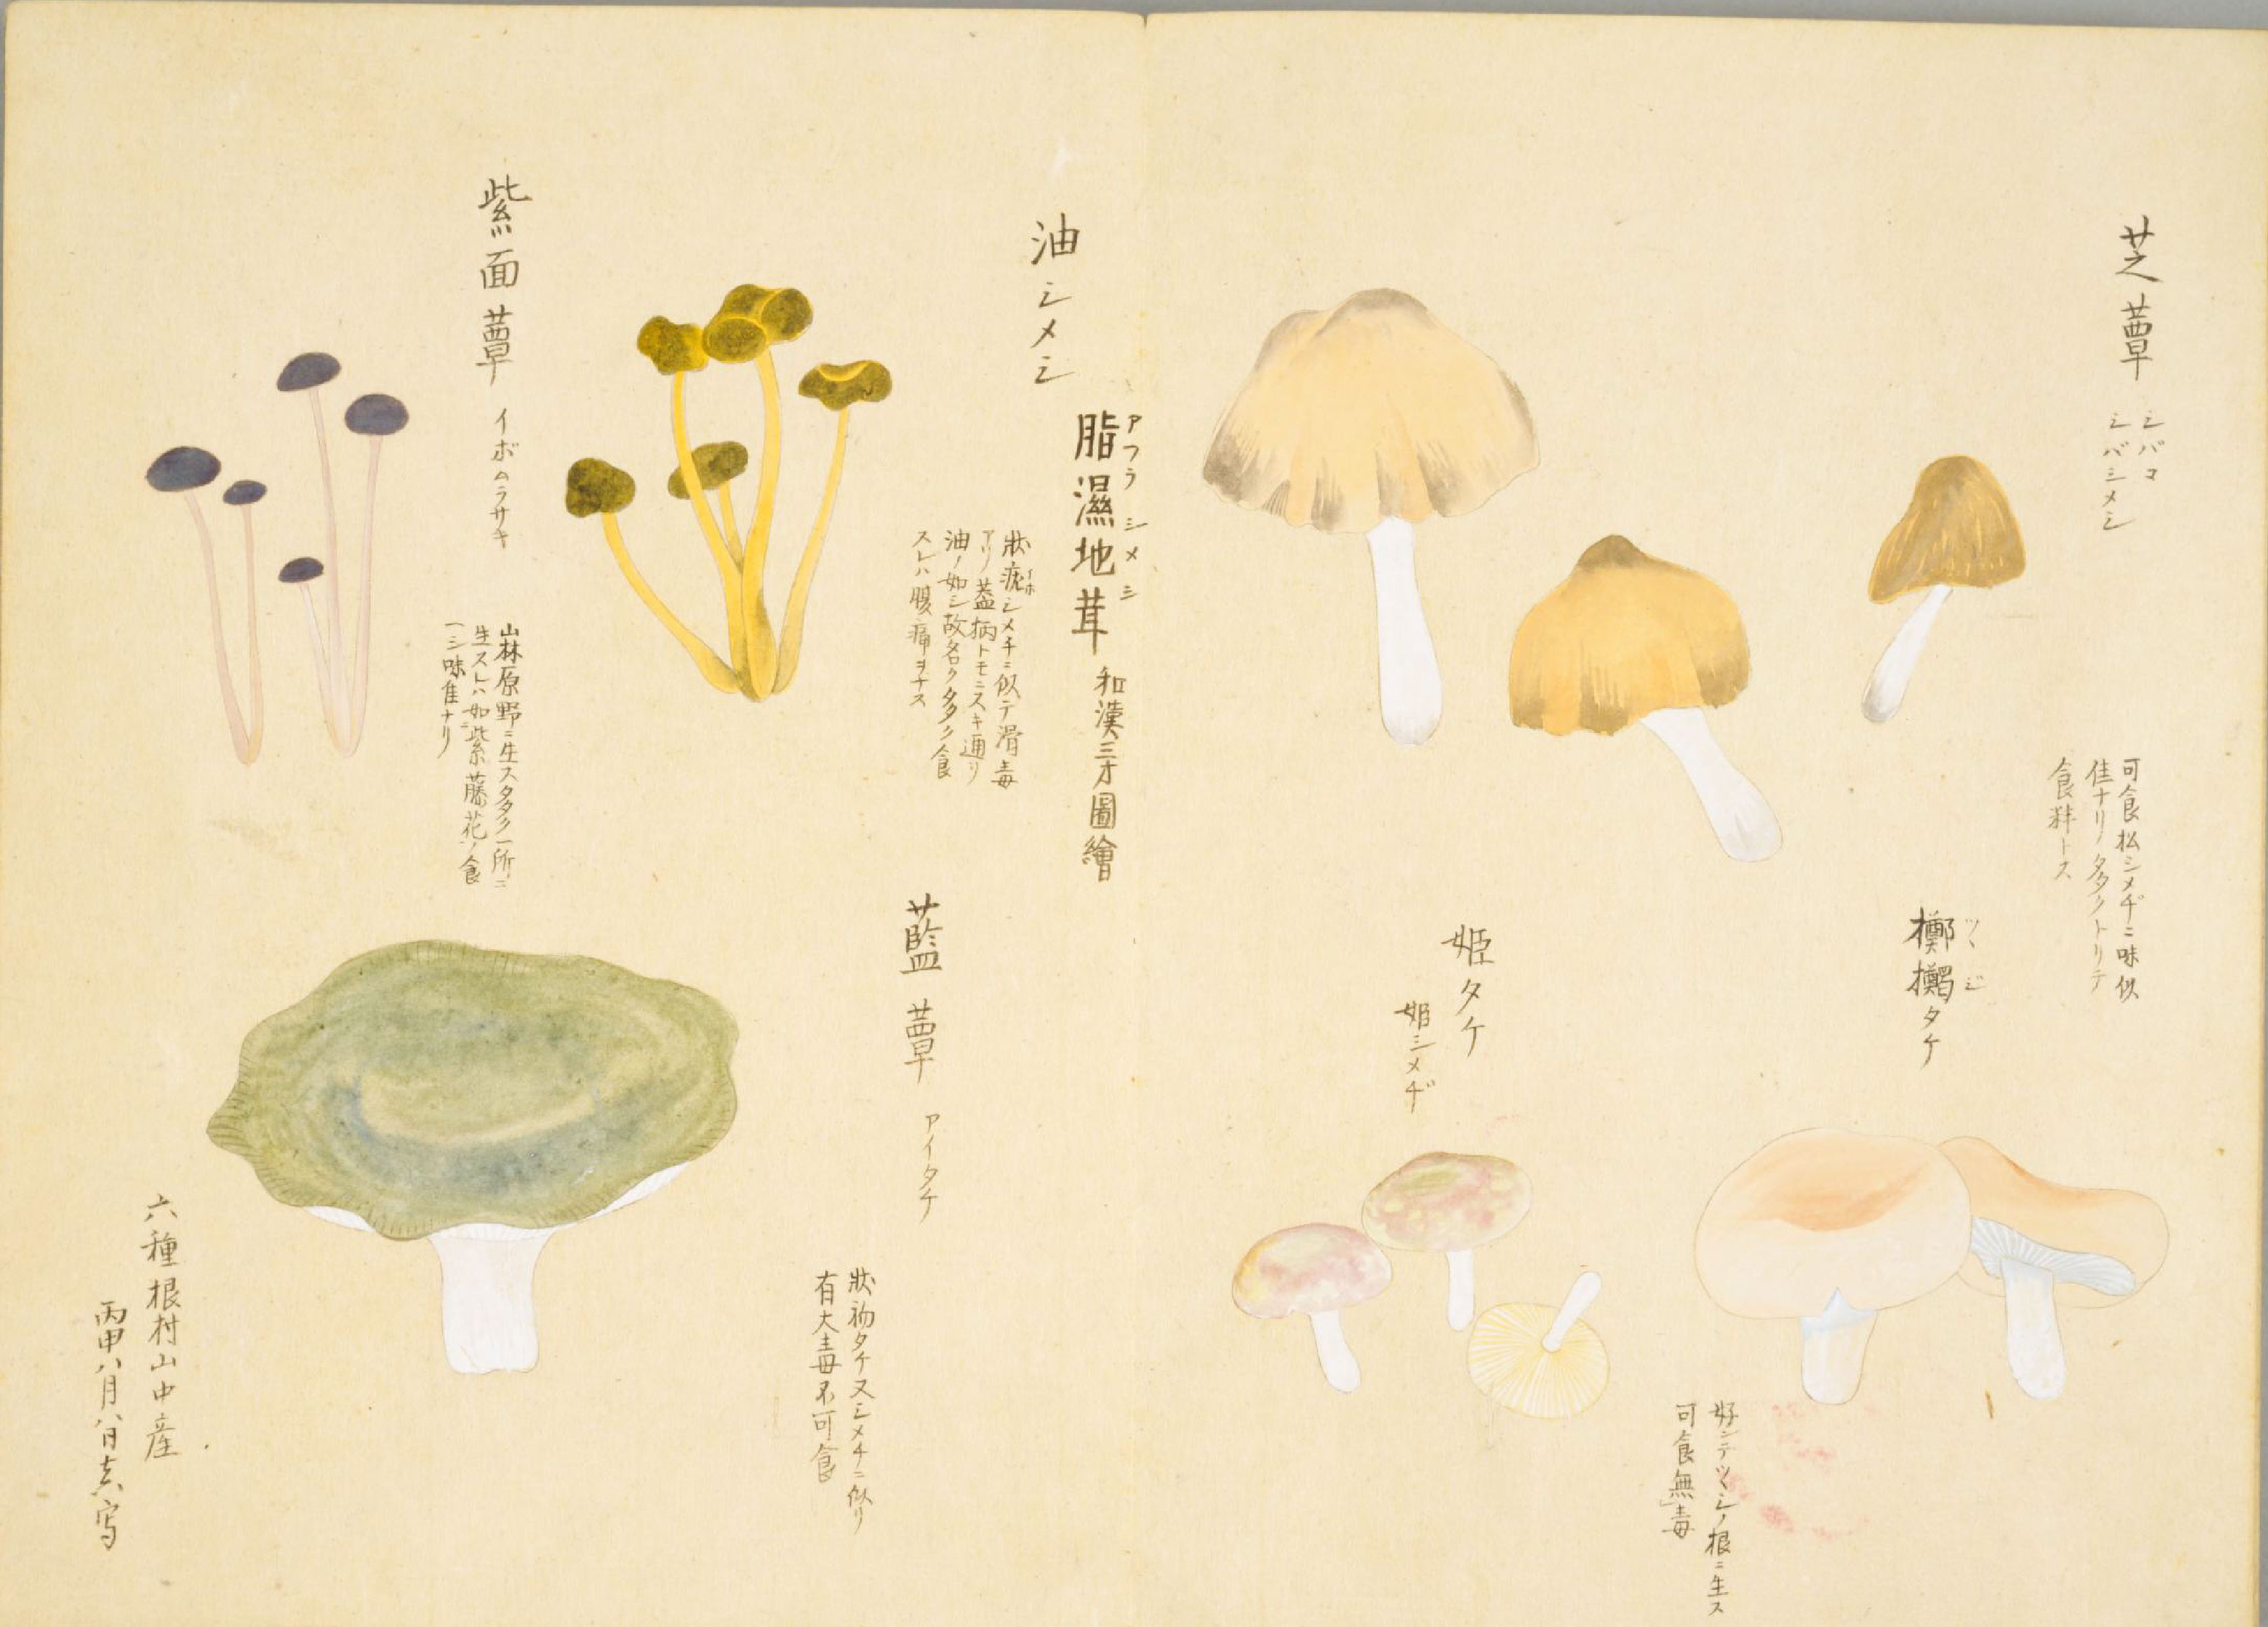 芝蕈
シバコ
シバシメシ
可食松シメヂニ味似
佳ナリ多クトリテ
食料トス
躑躅タケ
ツヽジ
好ンテツヽシノ根ニ生ス
可食無毒
姫タケ
姫シメヂ
油シメシ
脂濕地茸 和漢三才圖繪
アフラシメシ
狀疣シメチニ似テ滑毒
イホ
アリ蓋柄トモニスキ通リ
油ノ如シ故名ク多ク食
スレハ腹痛ヲナス
紫面蕈 イボムラサキ
山林原野ニ生ス多ク一所ニ
生スレハ如紫藤花ノ食
シ味佳ナリ
藍蕈 アイタケ
狀初タケ又シメチニ似リ
有大毒不可食
六種根村山中産
丙申八月八日真写